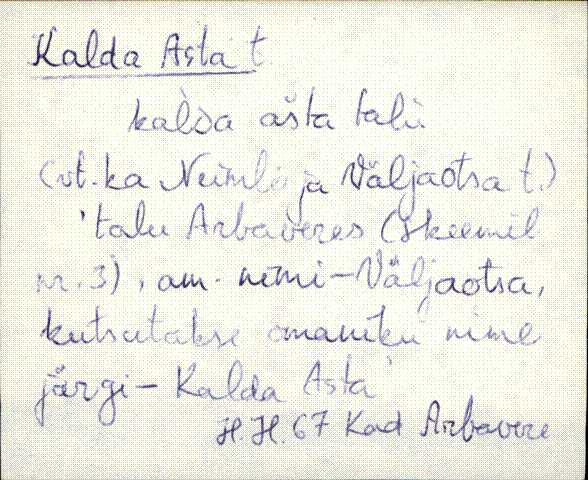 Kalda Asta t.
kalda ašta talu
(vt. ka Neimla ja Väljaotsa t.)
'talu Arbaveres (skeemil
nr. 3), am. nimi - Väljaotsa,
kutsutakse omaniku nime
järgi - Kalda Asta'
H.H. 67 Kad Arbavere